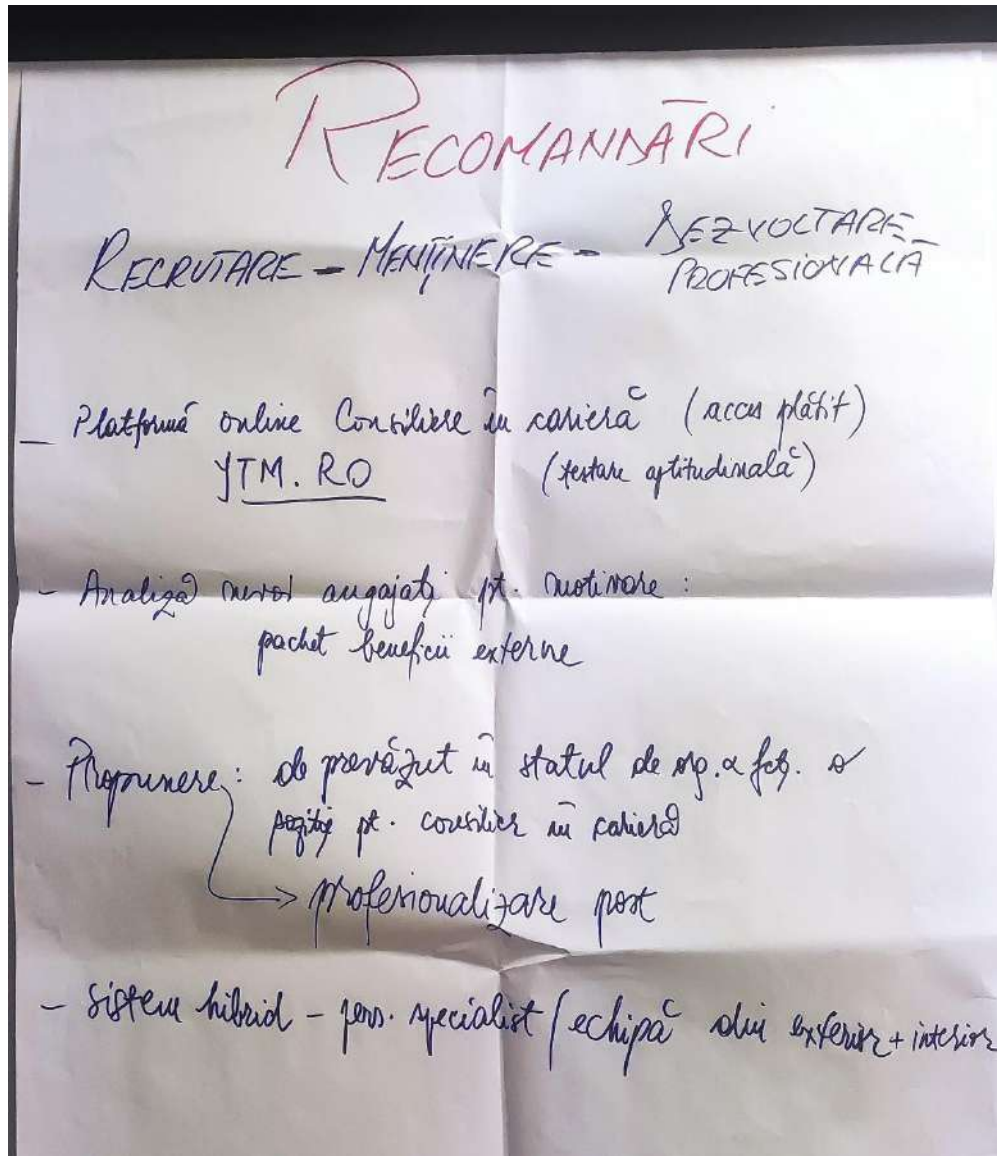 RECOMANDĂRI
RECRUTARE - MENȚINERE - DEZVOLTARE
PROFESIONALĂ
- Platformă online Consiliere în carieră (acces plătit)
YTM.RO (testare aptitudinală)
- Analiză nevoi angajați pt. motivare :
pachet beneficii externe
- Propunere : de prevăzut în statul de org. a fcț. o
poziție pt. consilier în carieră
→ profesionalizare post
- sistem hibrid - pers. specialist / echipă din exterior + interior